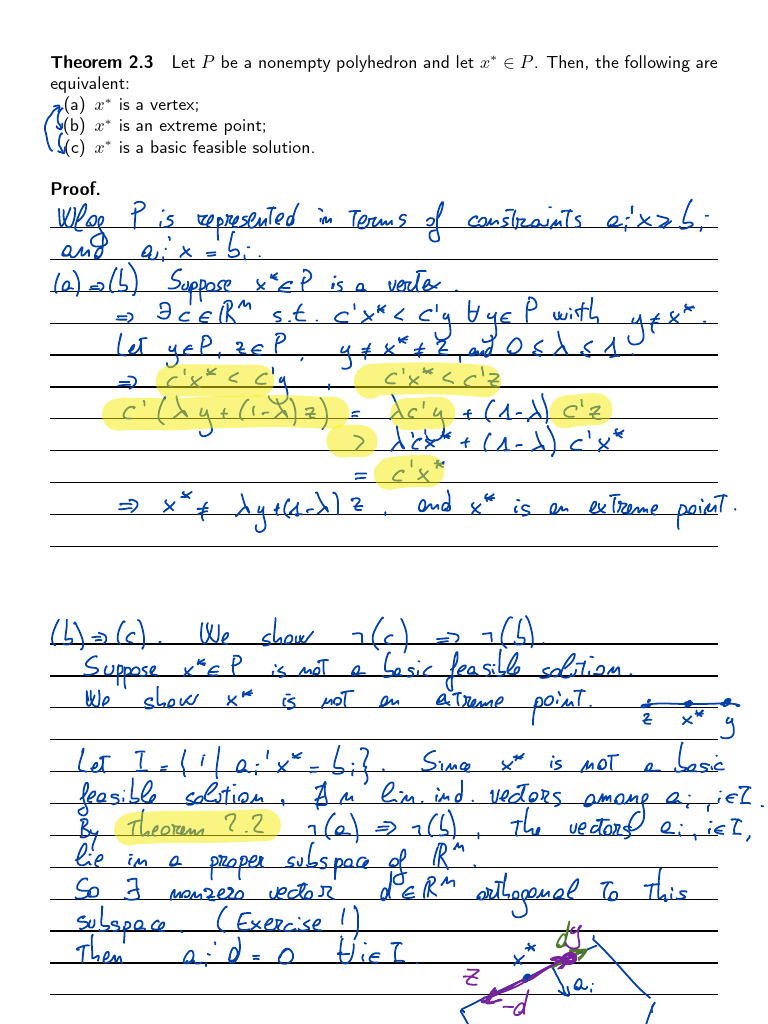 Theorem 2.3 Let P be a nonempty polyhedron and let x* ∈ P. Then, the following are
equivalent:
(a) x* is a vertex;
(b) x* is an extreme point;
(c) x* is a basic feasible solution.
Proof.
Wlog P is represented in terms of constraints aᵢ'x ≥ bᵢ
and aᵢ'x = bᵢ.
(a) ⇒ (b) Suppose x* ∈ P is a vertex.
⇒ ∃ c ∈ ℝⁿ s.t. c'x* < c'y ∀ y ∈ P with y ≠ x*.
Let y ∈ P, z ∈ P, y ≠ x* ≠ z, and 0 ≤ λ ≤ 1.
⇒ c'x* < c'y , c'x* < c'z
c'(λy + (1-λ)z) = λc'y + (1-λ) c'z
> λc'x* + (1-λ) c'x*
= c'x*
⇒ x* ≠ λy + (1-λ) z , and x* is an extreme point.
(b) ⇒ (c). We show ¬(c) ⇒ ¬(b).
Suppose x* ∈ P is not a basic feasible solution.
We show x* is not an extreme point.
z x* y
Let I = {i | aᵢ'x* = bᵢ}. Since x* is not a basic
feasible solution, ∄ n lin. ind. vectors among aᵢ, i ∈ I.
By Theorem 2.2 ¬(a) ⇒ ¬(b), the vectors aᵢ, i ∈ I,
lie in a proper subspace of ℝⁿ.
So ∃ nonzero vector d ∈ ℝⁿ orthogonal to this
subspace. (Exercise!)
Then aᵢ'd = 0 ∀ i ∈ I
x* d y
z -d aᵢ